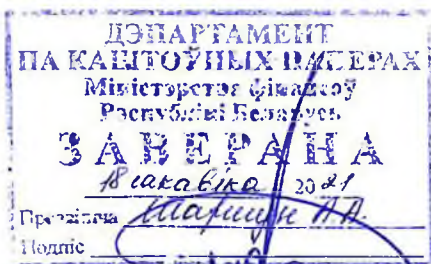 ДЭПАРТАМЕНТ
ПА КАШТОЎНЫХ ПАПЕРАХ
Міністэрства фінансаў
Рэспублікі Беларусь
ЗАВЕРАНА
18 сакавіка 2021
Прозвішча
Подпіс